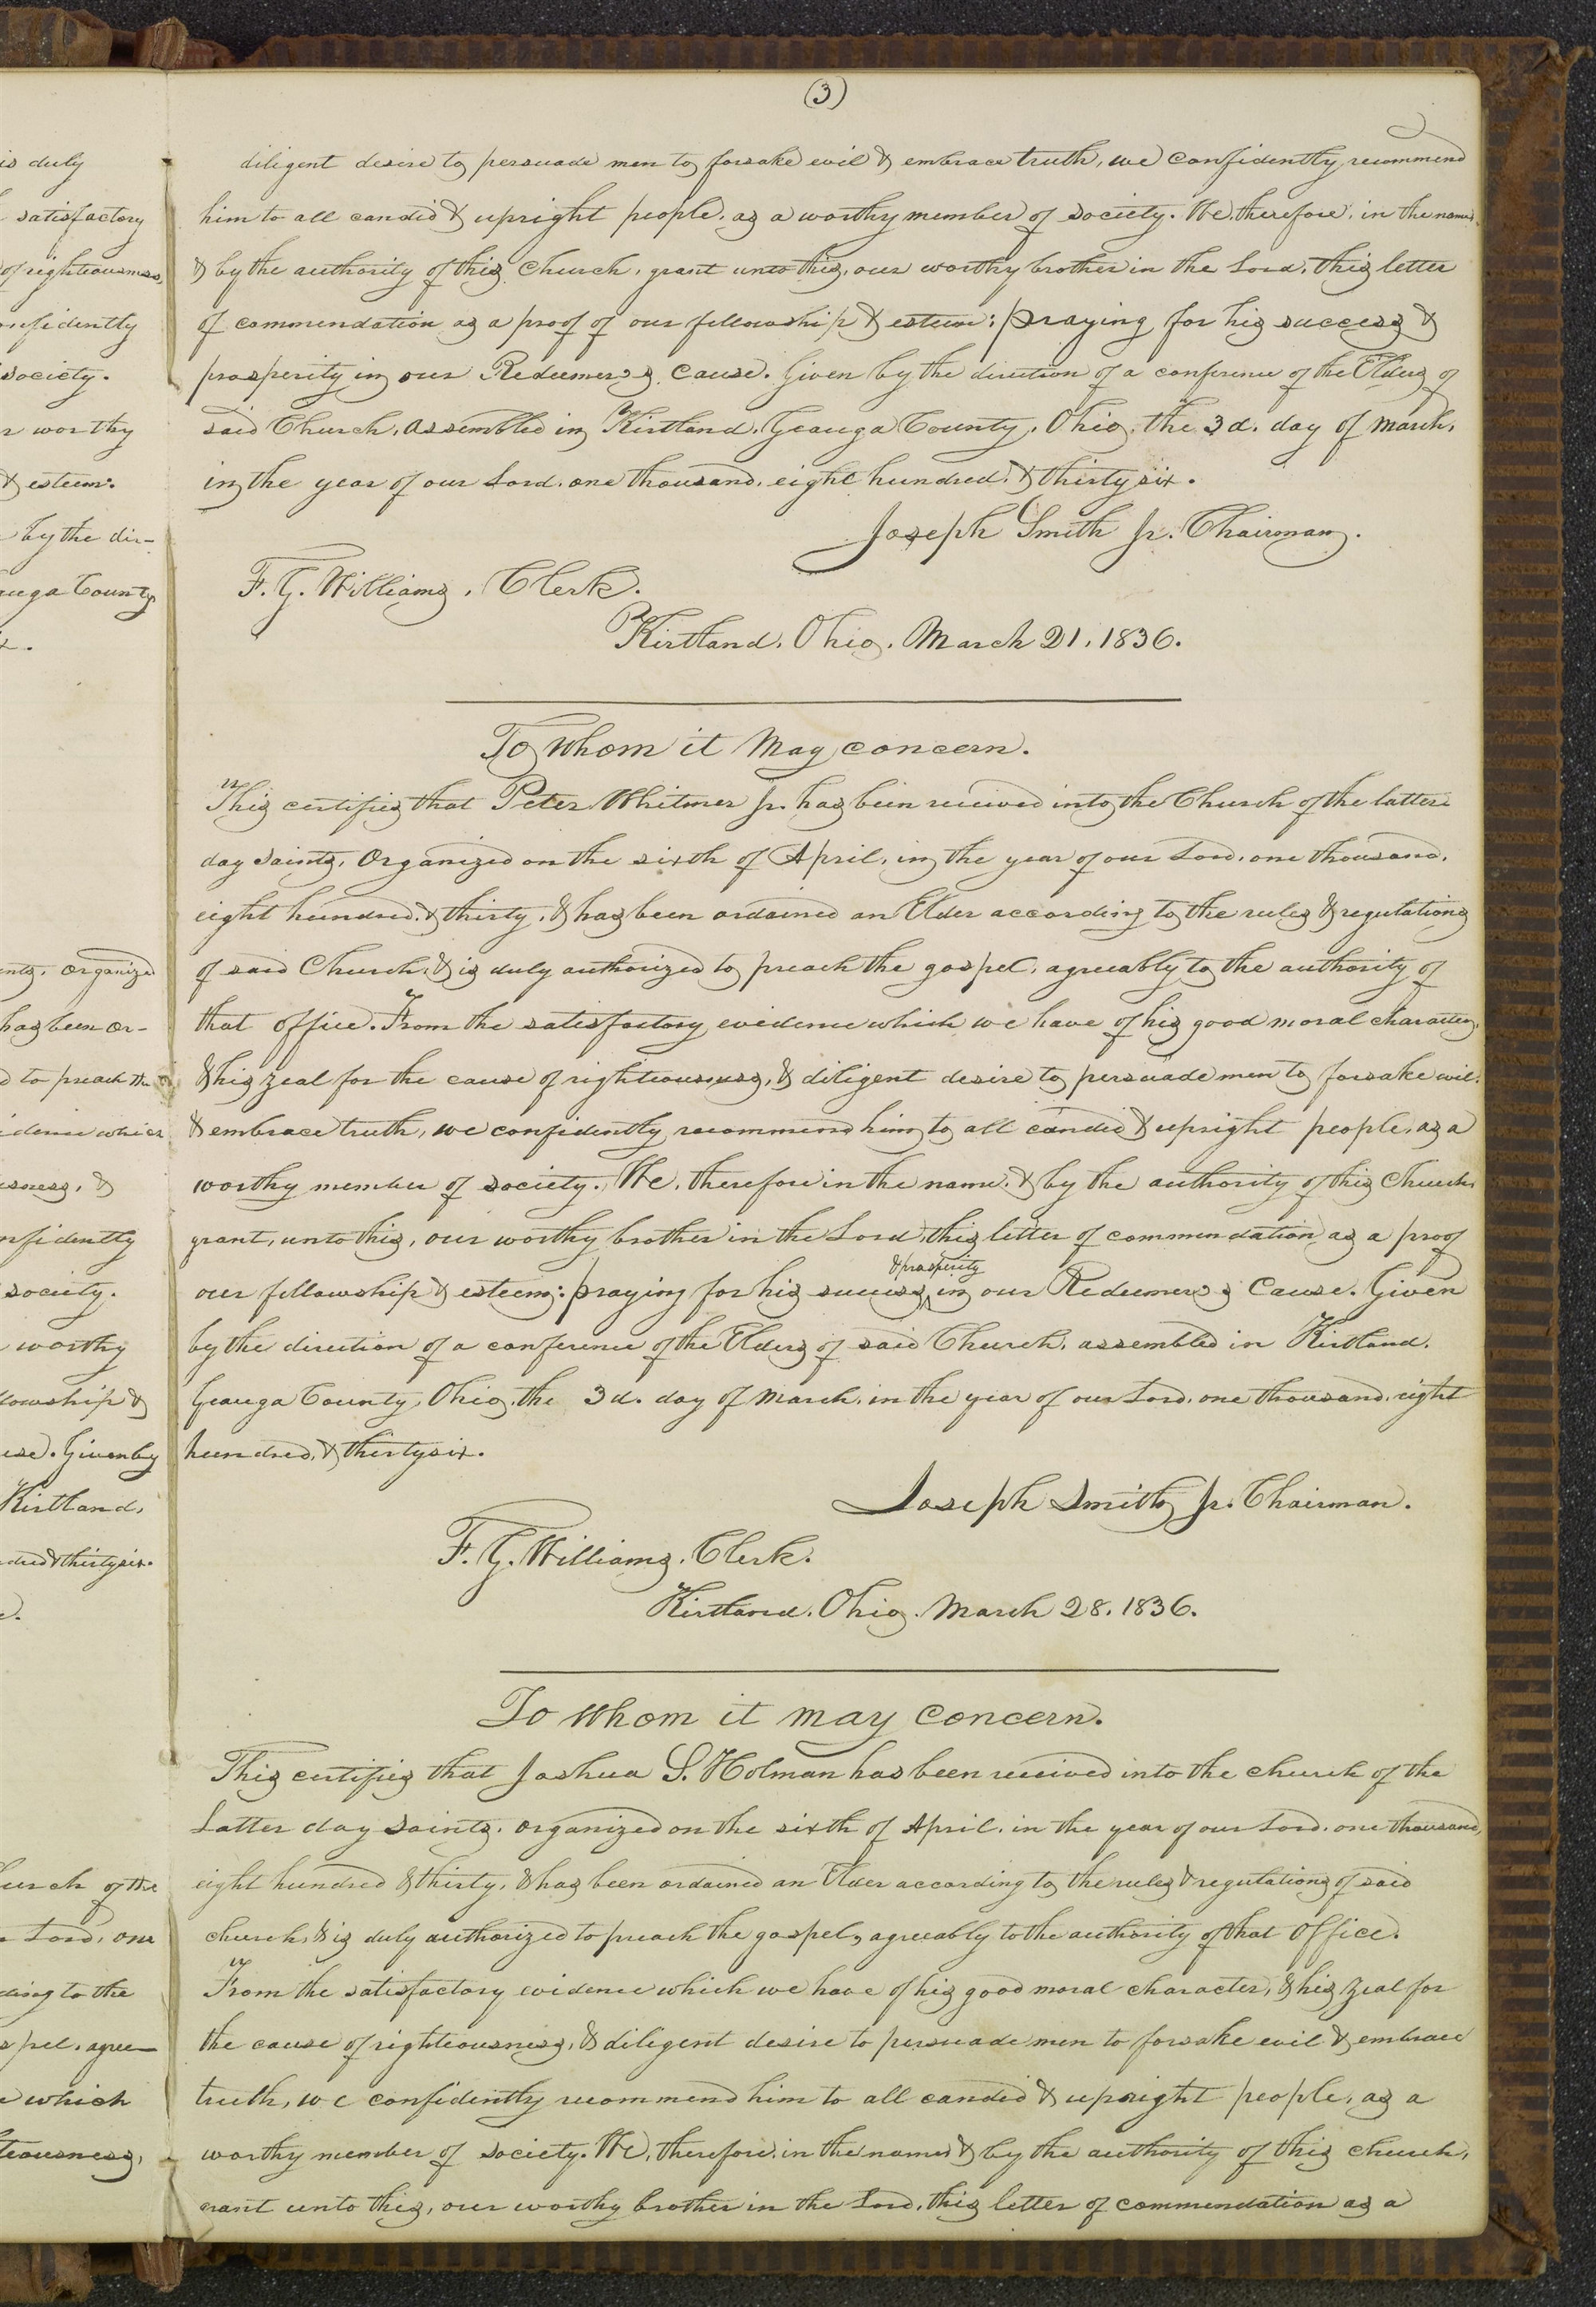 (3)
diligent desire to persuade men to forsake evil & embrace truth, we confidently recommend
him to all candid & upright people, as a worthy member of society. We, therefore, in the name,
& by the authority of this Church, grant unto this, our worthy brother in the Lord, this letter
of commendation as a proof of our fellowship & esteem: praying for his success &
prosperity in our Redeemer's cause. Given by the direction of a conference of the Elders of
said Church, assembled in Kirtland, Geauga County, Ohio, the 3d. day of March,
in the year of our Lord, one thousand, eight hundred, & thirty six.
Joseph Smith Jr. Chairman.
F. G. Williams, Clerk.
Kirtland, Ohio, March 21, 1836.
To Whom it May concern.
This certifies that Peter Whitmer Jr. has been received into the Church of the latter
day saints, Organized on the sixth of April, in the year of our Lord, one thousand,
eight hundred, & thirty, & has been ordained an Elder according to the rules & regulations
of said Church, & is duly authorized to preach the gospel, agreeably to the authority of
that office. From the satisfactory evidence which we have of his good moral character,
& his zeal for the cause of righteousness, & diligent desire to persuade men to forsake evil
& embrace truth, we confidently recommend him to all candid & upright people, as a
worthy member of society. We, therefore in the name, & by the authority of this Church
grant, unto this, our worthy brother in the Lord, this letter of commendation as a proof
our fellowship & esteem: praying for his success & prosperity in our Redeemer's Cause. Given
by the direction of a conference of the Elders of said Church, assembled in Kirtland,
Geauga County, Ohio, the 3d. day of March, in the year of our Lord, one thousand, eight
hundred, & thirty six.
Joseph Smith Jr. Chairman.
F. G. Williams, Clerk.
Kirtland, Ohio, March 28, 1836.
To Whom it may Concern.
This certifies that Joshua S. Holman has been received into the church of the
Latter day Saints, organized on the sixth of April, in the year of our Lord, one thousand,
eight hundred & thirty, & has been ordained an Elder according to the rules & regulations of said
church, & is duly authorized to preach the gospel, agreeably to the authority of that Office.
From the satisfactory evidence which we have of his good moral character, & his zeal for
the cause of righteousness, & diligent desire to persuade men to forsake evil & embrace
truth, we confidently recommend him to all candid & upright people, as a
worthy member of society. We, therefore, in the name & by the authority of this church,
grant unto this, our worthy brother in the Lord, this letter of commendation as a
is duly
satisfactory
of righteousness,
society.
worthy
& esteem:
by the dir-
County
organized
has been or-
to preach the
which
&
society.
worthy
&
Given by
Kirtland,
& thirty six.
of the
Lord, one
to the
agree-
which